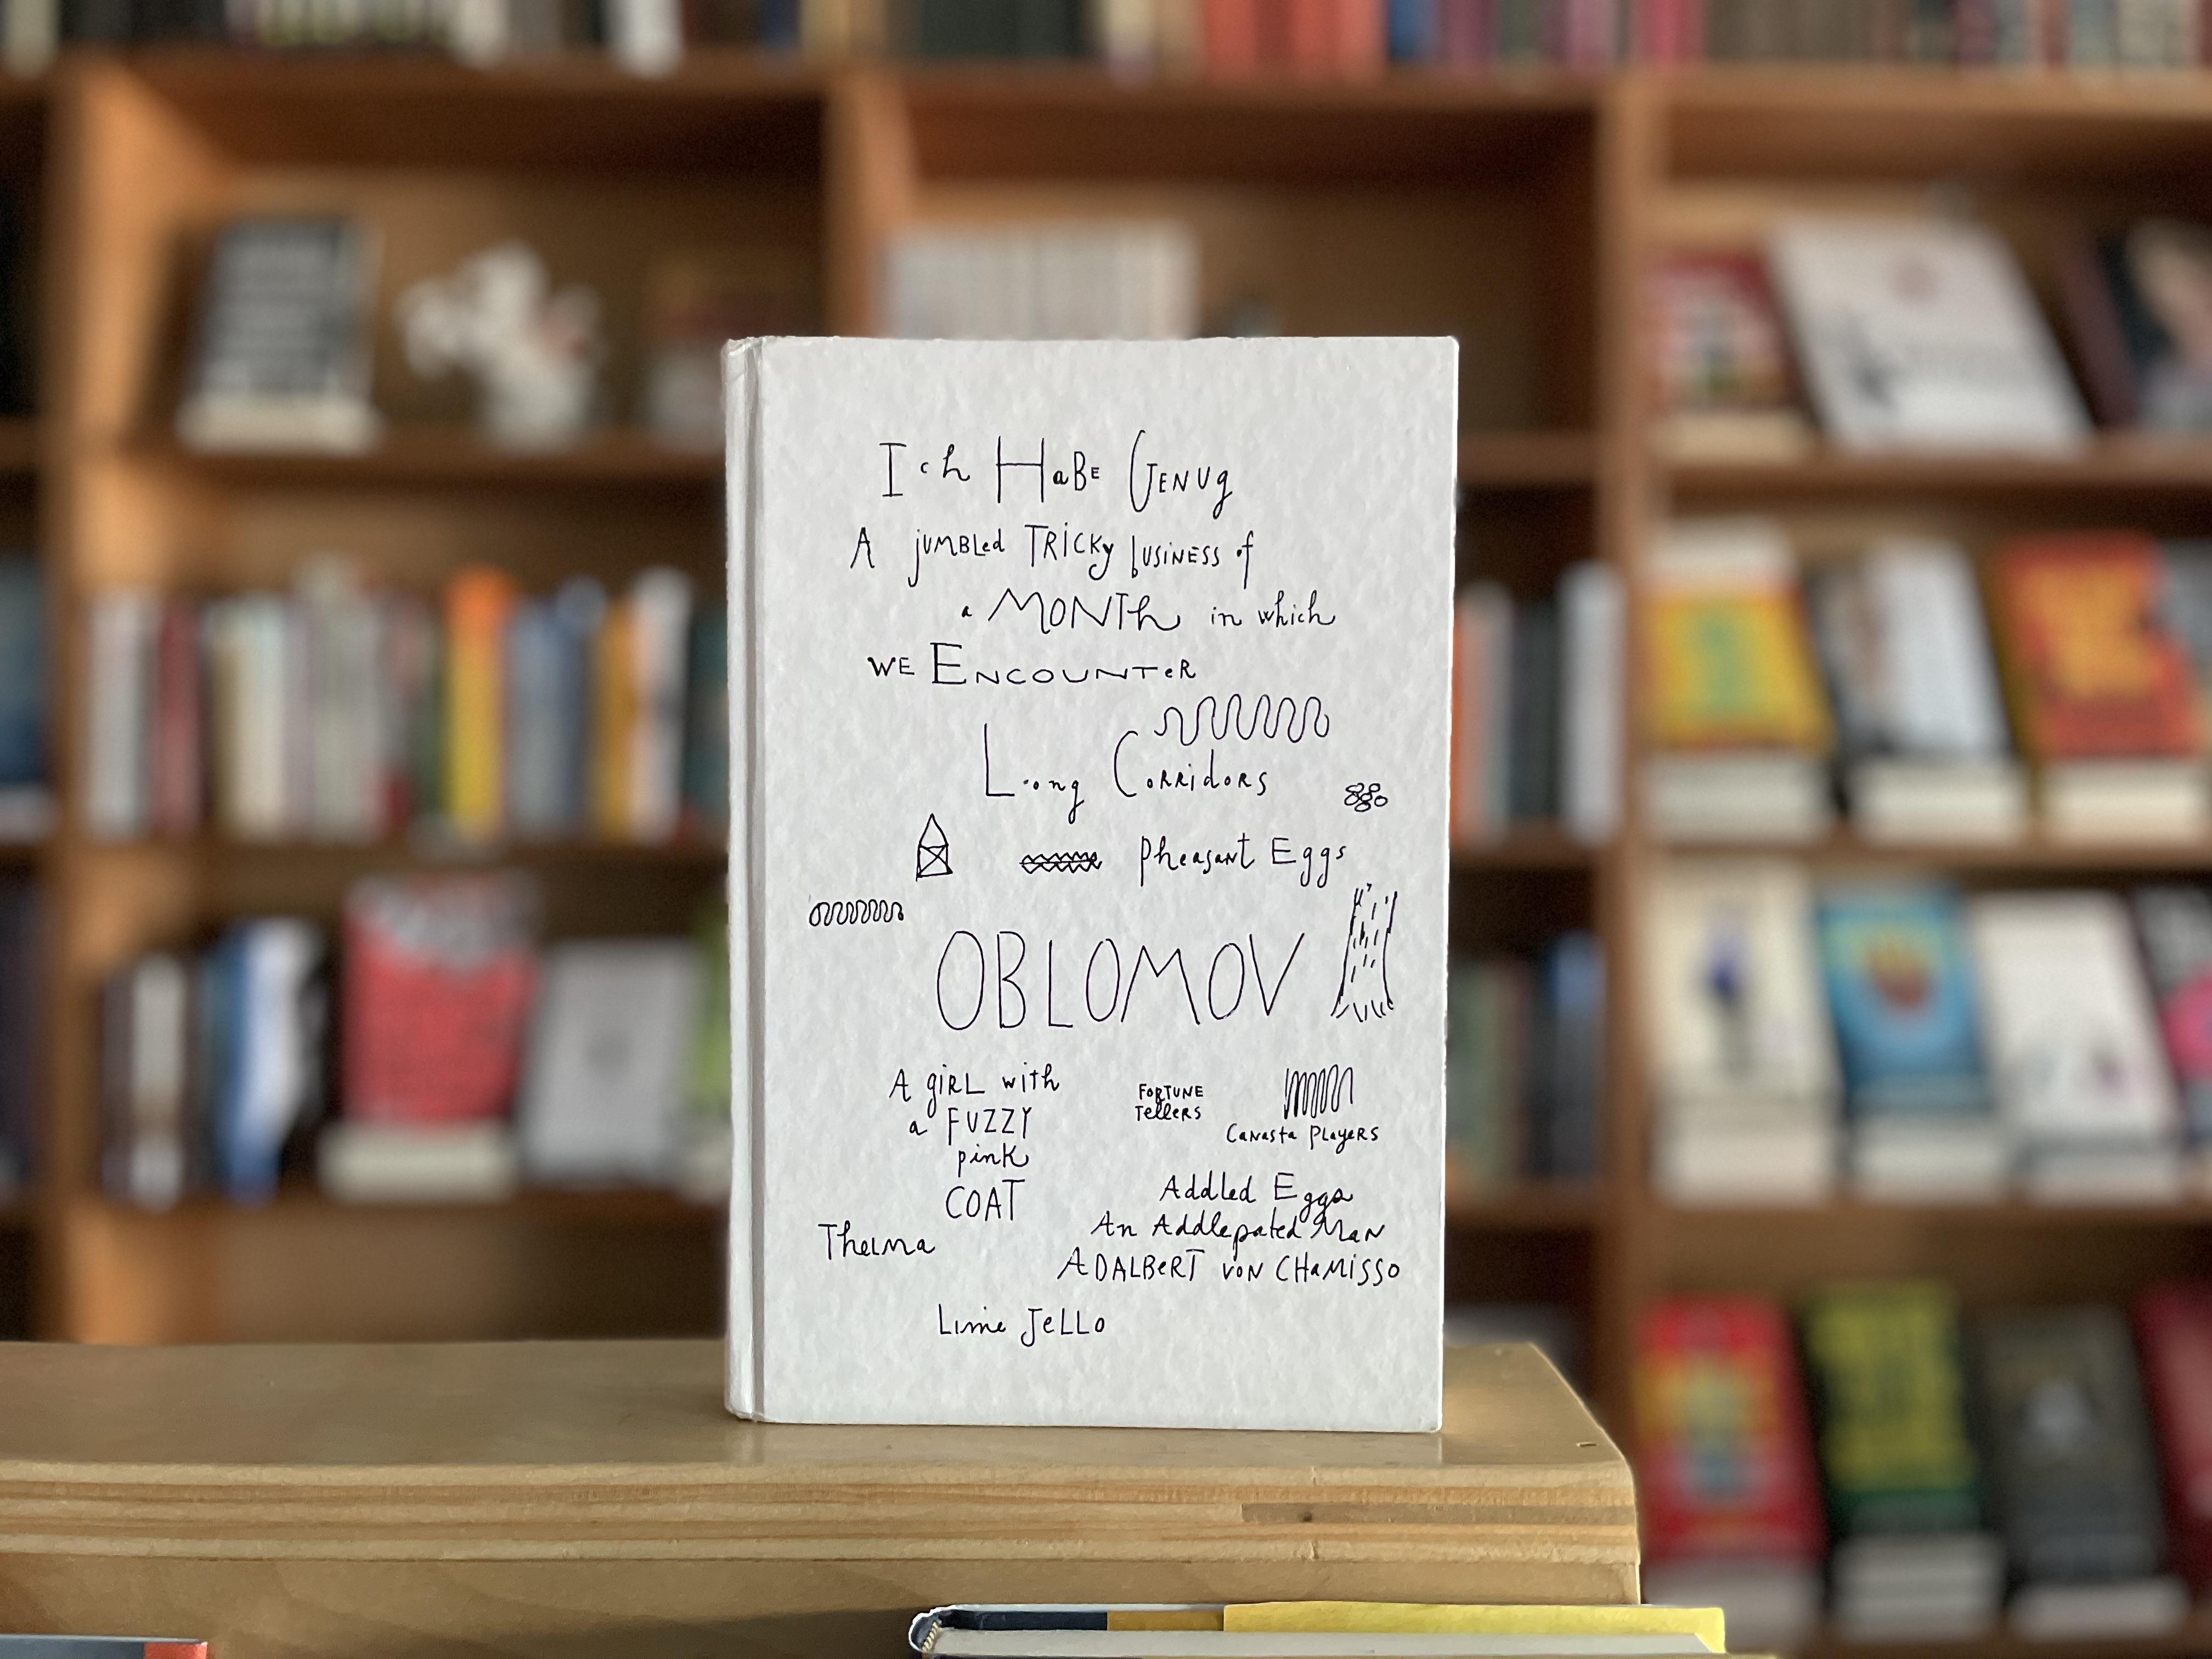 Ich HaBe GENUg
A jUMBLed TRiCKy bUSiNESS of
a MONTh in which
WE ENCOUNTeR
Long CoRRidoRS
Pheasant Eggs
OBLOMOV
A giRL with
a FUZZY
pink
COAT
FORTUNE
TelleRS
Canasta PLayeRS
Addled Eggs
An Addlepated Man
Thelma
ADALBeRT voN CHaMiSSO
Lime JeLLo